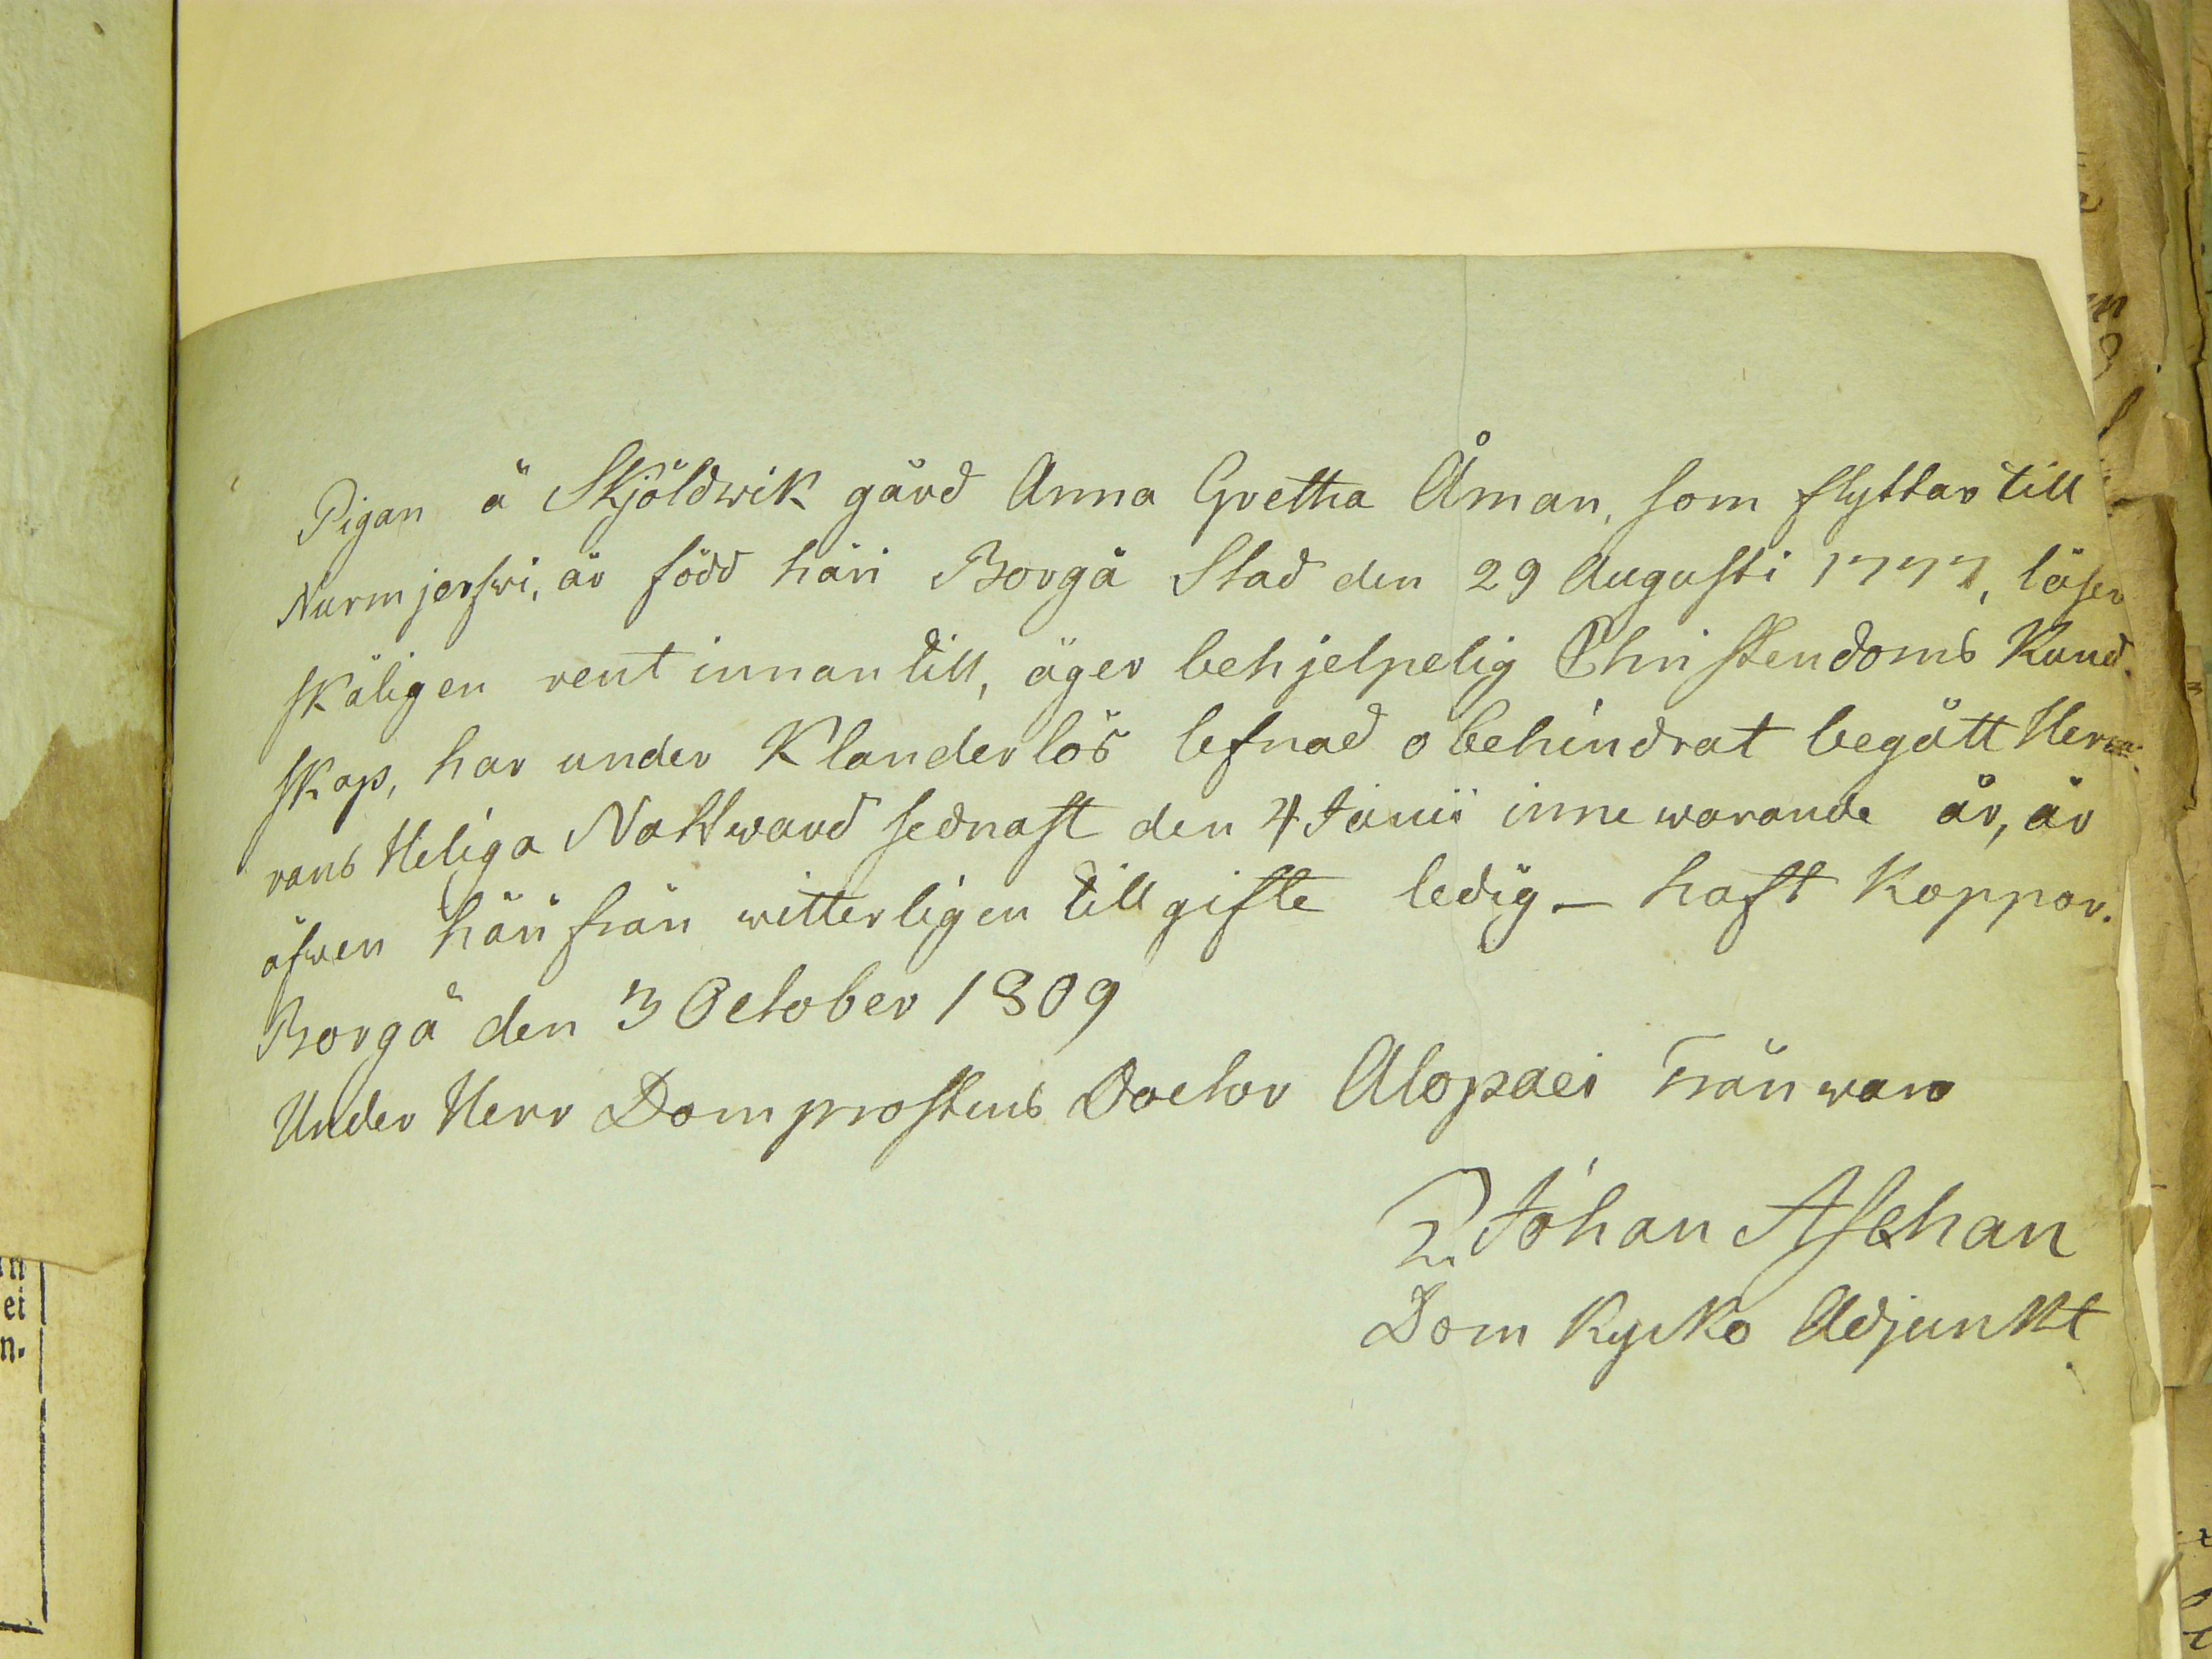 Pigan å Skjöldwik gård Anna Gretha Åman, som flyttar till
Nurmjerfwi, är född häri Borgå Stad den 29 Augusti 1777, läser
skäligen rent innantill, äger behjelpelig Christendoms Kund.
skap, har under Klanderlös lefnad obehindrat begått Her
rans Heliga Nattward sednast den 4 Junii innewarande år, är
äfwen härifrån witterligen till gifte ledig – haft Koppor.
Borgå den 3 October 1809
Under Herr Domprostens Doctor Alopaei Frånwaro
Johan Aschan
Dom Kyrko Adjunkt
in
ei
n.